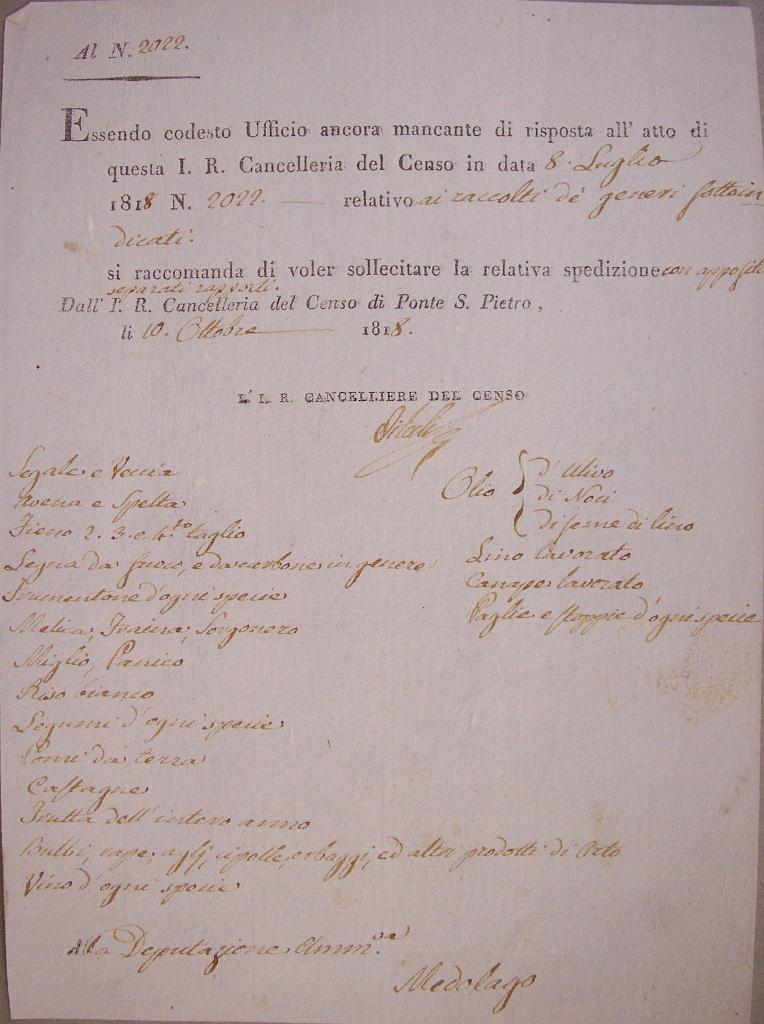 Al N. 2022.
Essendo codesto Ufficio ancora mancante di risposta all' atto di
questa I. R. Cancelleria del Censo in data 8. Luglio
1818 N. 2022. relativo ai raccolti de' generi sottoin
dicati.
si raccomanda di voler sollecitare la relativa spedizione con appositi
separati rapporti.
Dall' I. R. Cancelleria del Censo di Ponte S. Pietro,
li 10. Ottobre 1818.
L' I. R. CANCELLIERE DEL CENSO
Segale e Veccia
Avena e Spelta
Fieno 2. 3. e 4.to taglio
Legna da fuoco, e da carbone in genere
Frumentone d'ogni specie
Melica, Fraina, Sorgonero
Miglio, Panico
Riso bianco
Legumi d'ogni specie
Pomi da terra
Castagne
Frutta dell'intero anno
Bulbi, rape, aglj, cipolle, erbaggi, ed altri prodotti di Orto
Vino d'ogni specie
Olio { d'Ulivo
di Noci
di seme di lino
Lino lavorato
Canape lavorato
Paglie e stoppie d'ogni specie
Alla Deputazione Amm.va
Medolago